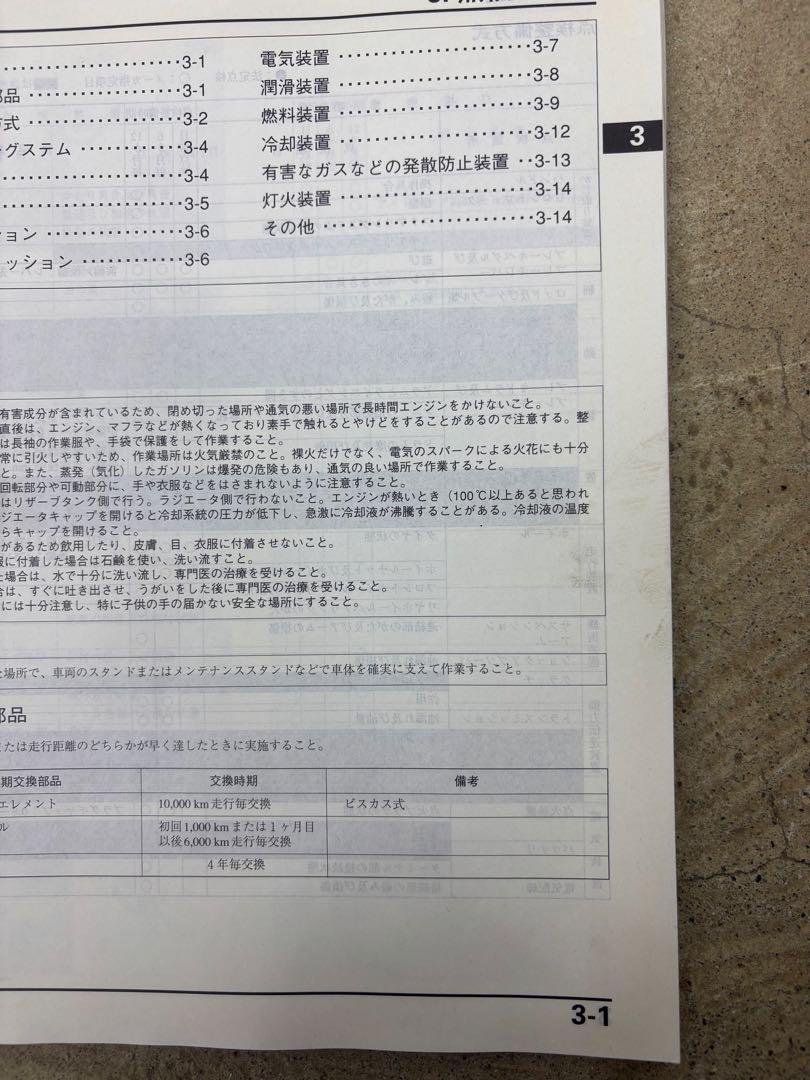 3-1
部品 3-1
方式 3-2
グステム 3-4
3-4
3-5
ション 3-6
ッション 3-6
電気装置 3-7
潤滑装置 3-8
燃料装置 3-9
冷却装置 3-12
有害なガスなどの発散防止装置 3-13
灯火装置 3-14
その他 3-14
3
有害成分が含まれているため、閉め切った場所や通気の悪い場所で長時間エンジンをかけないこと。
直後は、エンジン、マフラなどが熱くなっており素手で触れるとやけどをすることがあるので注意する。整
は長袖の作業服や、手袋で保護をして作業すること。
常に引火しやすいため、作業場所は火気厳禁のこと。裸火だけでなく、電気のスパークによる火花にも十分
と。また、蒸発(気化)したガソリンは爆発の危険もあり、通気の良い場所で作業すること。
回転部分や可動部分に、手や衣服などをはさまれないように注意すること。
はリザーブタンク側で行う。ラジエータ側で行わないこと。エンジンが熱いとき(100℃以上あると思われ
ジエータキャップを開けると冷却系統の圧力が低下し、急激に冷却液が沸騰することがある。冷却液の温度
らキャップを開けること。
があるため飲用したり、皮膚、目、衣服に付着させないこと。
服に付着した場合は石鹸を使い、洗い流すこと。
た場合は、水で十分に洗い流し、専門医の治療を受けること。
合は、すぐに吐き出させ、うがいをした後に専門医の治療を受けること。
には十分注意し、特に子供の手の届かない安全な場所にすること。
な場所で、車両のスタンドまたはメンテナンススタンドなどで車体を確実に支えて作業すること。
部品
または走行距離のどちらかが早く達したときに実施すること。
期交換部品 交換時期 備考
エレメント 10,000 km走行毎交換 ビスカス式
ル 初回1,000 kmまたは1ヶ月目
以後6,000 km走行毎交換
4年毎交換
3-1